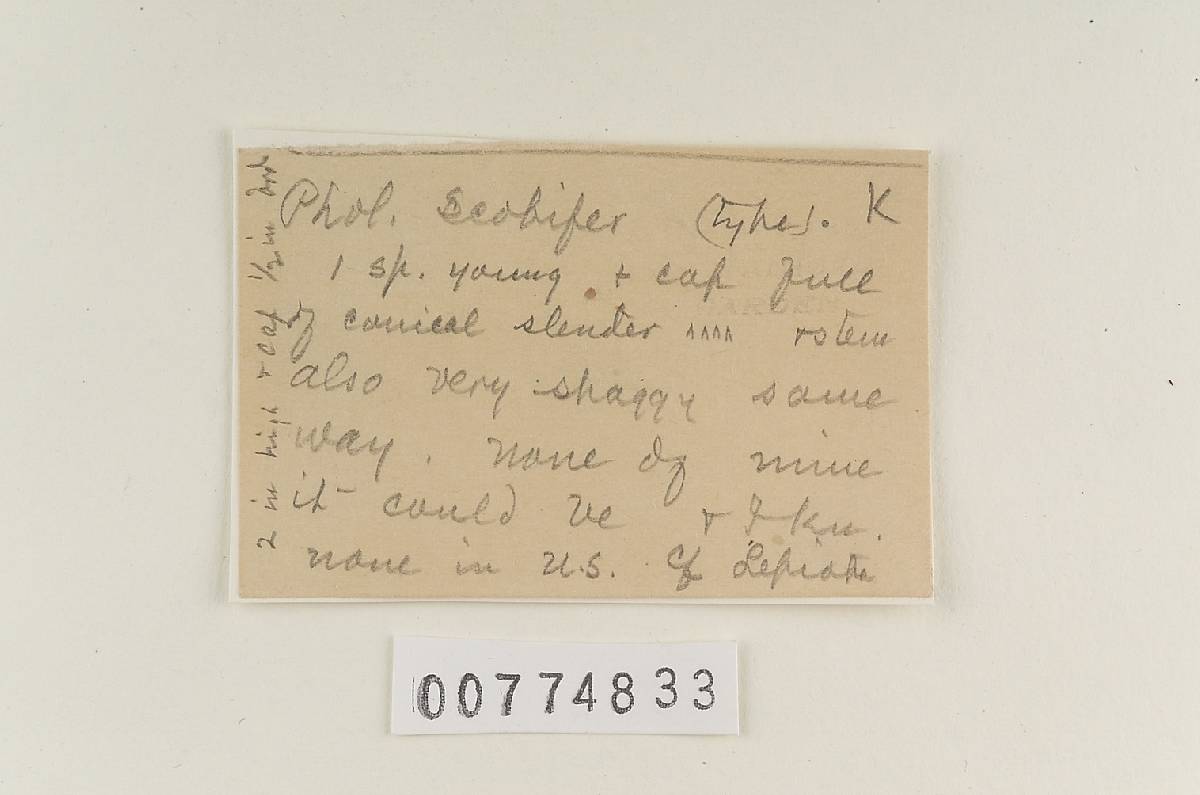 Phol. Scobifer (type). K
1 sp. young + cap full
of conical slender ^^^^ + stem
also very shaggy same
way. none of mine
it could be + I kn.
none in U.S. Cf Lepiota
2 in high + cap 1/2 in
GARDEN
00774833